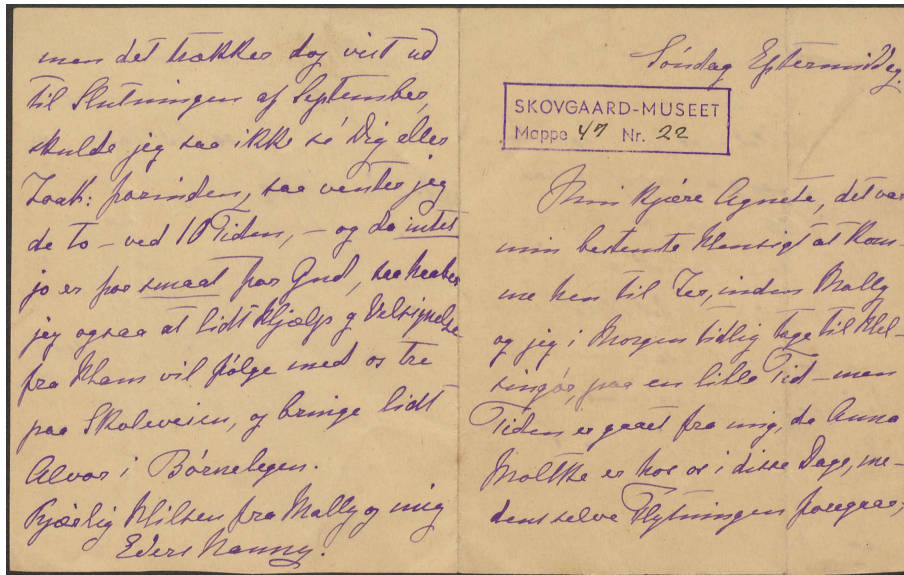 men det trækker dog vist ud
til Slutningen af September,
skulde jeg saa ikke sé Dig eller
Joak: forinden, saa venter jeg
de to – ved 10 Tiden, – og da intet
jo er for smaat for Gud, saa haaber
jeg ogsaa at lidt Hjælp og Velsignelse
fra Ham vil følge med os tre
paa Skoleveien, og bringe lidt
Alvor i Børnelegen.
Kjærlig Hilsen fra Mally og mig
Eders Nanny.
Søndag Eftermiddag.
SKOVGAARD-MUSEET
Mappe 47 Nr. 22
Min kjære Agnete, det var
min bestemte Hensigt at kom-
me hen til Jer, inden Mally
og jeg i Morgen tidlig tage til Hel-
singør, paa en lille Tid – men
Tiden er gaaet fra mig, da Anna
Moltke er hos os i disse Dage, me-
dens selve Flytningen foregaar,